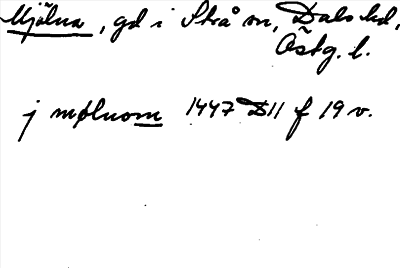 Mjölna, gd i Strå sn, Dals hd,
Östg. l.
j mølnom 1447 D11 f 19 v.